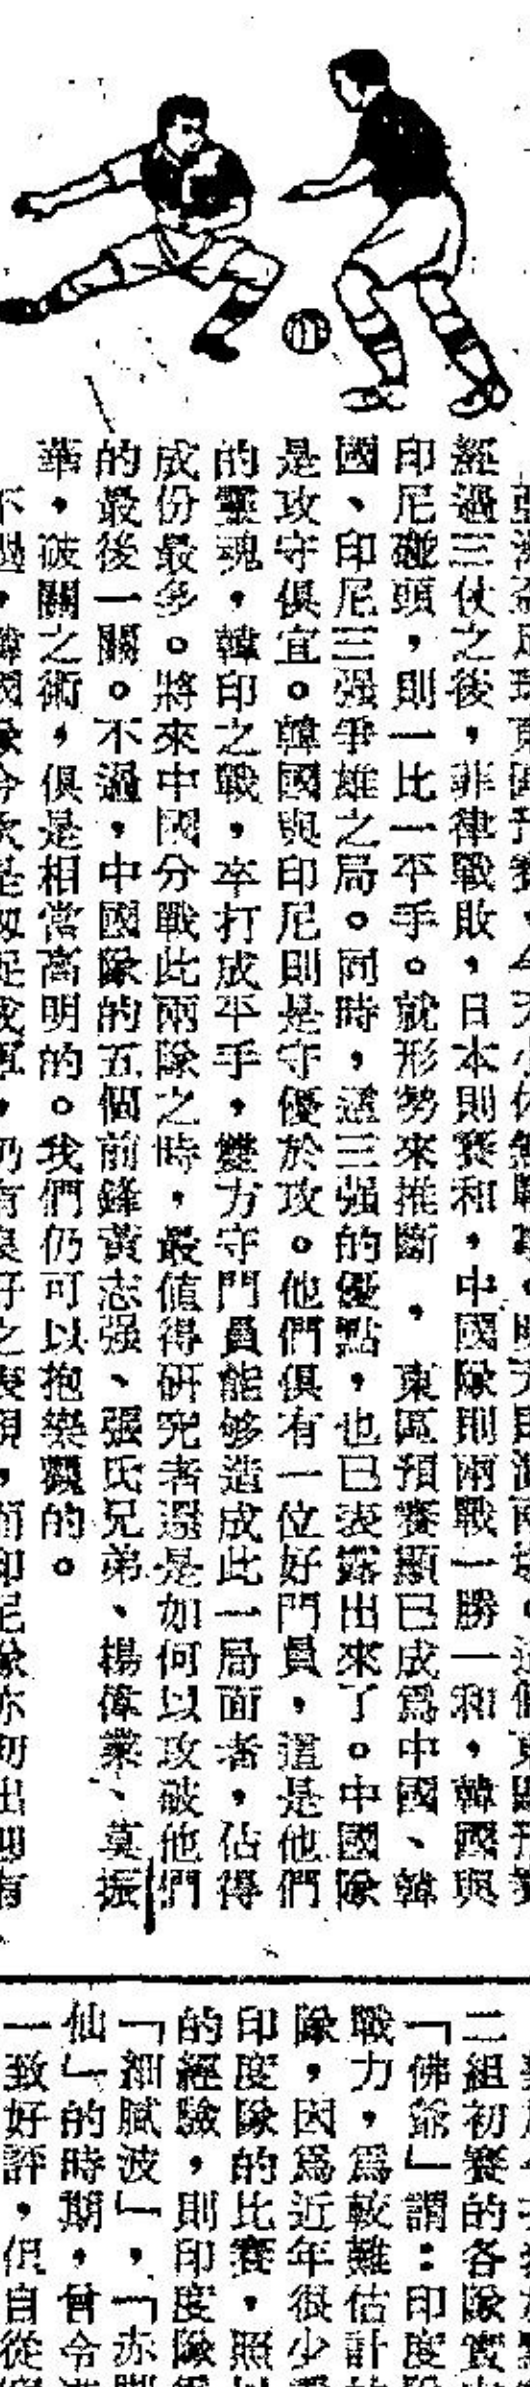 經過三仗之後，非律戰敗，日本則賽和，中國隊則兩戰一勝一和，韓國與
印尼碰頭，則一比一平手。就形勢來推斷，東區預賽顯已成爲中國、韓
國、印尼三强爭雄之局。同時，這三强的優點，也已表露出來了。中國隊
是攻守俱宜。韓國與印尼則是守優於攻。他們俱有一位好門員，這是他們
的靈魂，韓印之戰，卒打成平手，雙方守門員能够造成此一局面者，佔得
成份最多。將來中國分戰此兩隊之時，最值得研究者還是如何以攻破他們
的最後一關。不過，中國隊的五個前鋒黃志强、張氏兄弟、楊偉業、莫振
華，破關之術，俱是相當高明的。我們仍可以抱樂觀的。
二組初賽的各隊實
「佛爺」謂：印度
戰力，爲較難估計
隊，因爲近年很少
印度隊的比賽，照
的經驗，則印度隊
「細膩波」，「赤脚
仙」的時期，曾令
一致好評，但自從